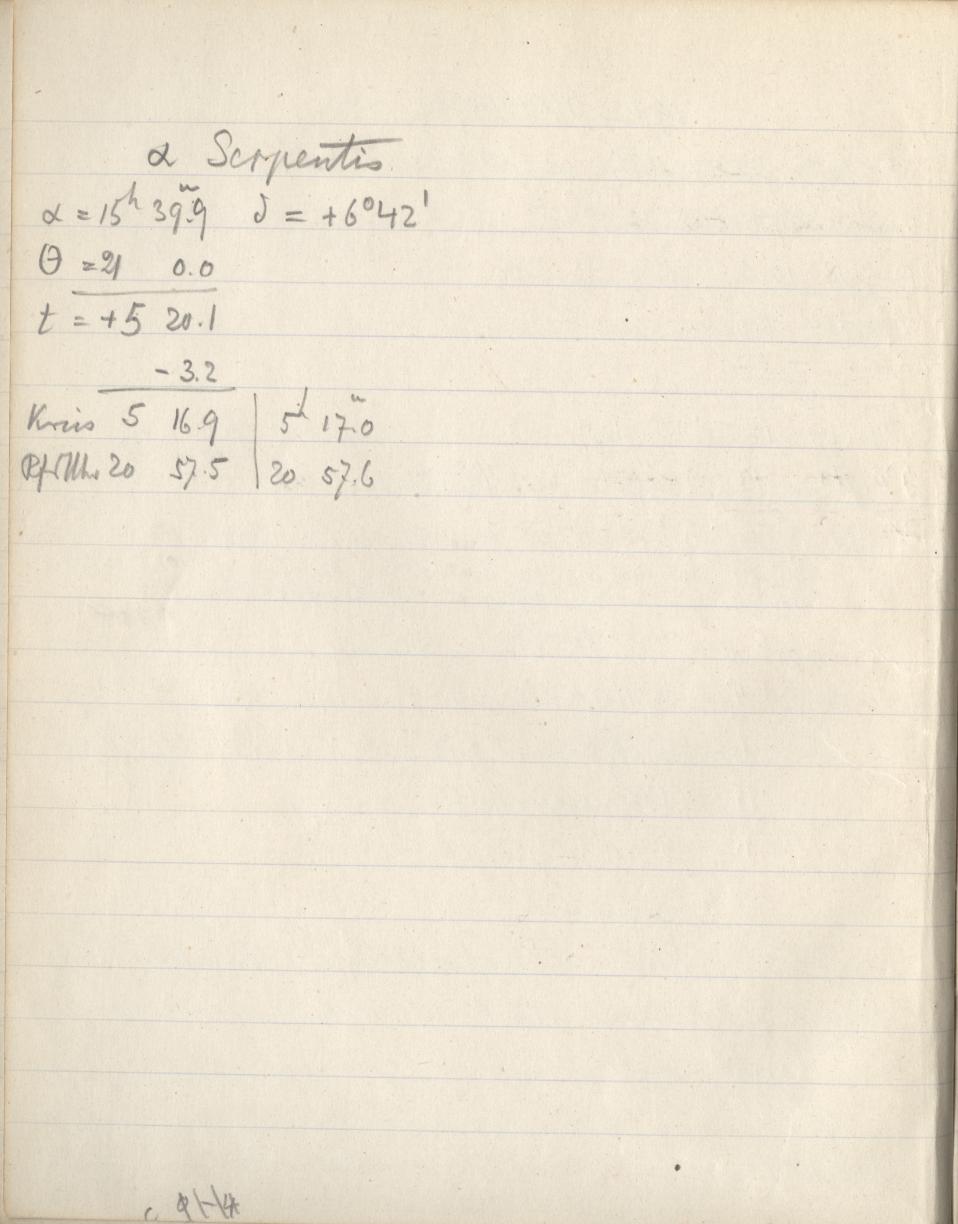 α Serpentis
α = 15ʰ 39ᵐ.9 δ = +6°42'
θ = 21 0.0
t = +5 20.1
- 3.2
Kreis 5 16.9 | 5ʰ 17ᵐ.0
20 57.5 | 20 57.6